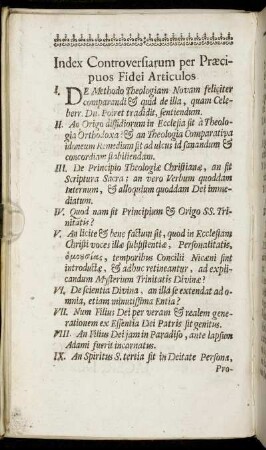 Index Controversiarum per Præci-
puos Fidei Articulos
I. DE Methodo Theologiam Novam feliciter
comparandi & quid de illa, quam Cele-
berr. Dn. Poiret tradidit, sentiendum.
II. An Origo dissidiorum in Ecclesia sit à Theolo-
gia Orthodoxa? & an Theologia Comparativa
idoneum Remedium sit ad ulcus id sanandum &
concordiam stabiliendam.
III. De Principio Theologiæ Christianæ, an sit
Scriptura Sacra: an vero Verbum quoddam
Internum, & alloquium quoddam Dei imme-
diatum.
IV. Quod nam sit Principium & Origo SS. Tri-
nitatis?
V. An licite & bene factum sit, quod in Ecclesiam
Christi voces illæ subsistentiæ, Personalitatis,
ὁμουσίας, temporibus Concilii Nicæni sint
introductæ, & adhuc retineantur, ad expli-
candum Mysterium Trinitatis Divinæ?
VI. De scientia Divina, an illa se extendat ad o-
mnia, etiam minutissima Entia?
VII. Num Filius Dei per veram & realem gene-
rationem ex Essentia Dei Patris sit genitus.
VIII. An Filius Dei jam in Paradiso, ante lapsum
Adami fuerit incarnatus.
IX. An Spiritus S. tertia sit in Deitate Persona,
Pro-